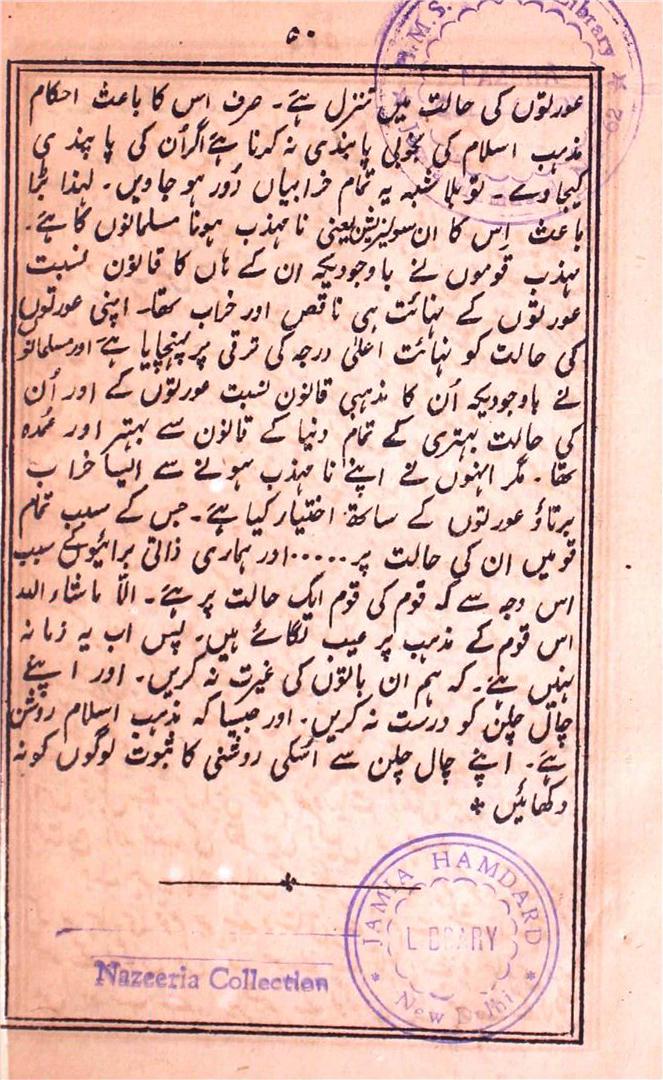 ۵۰
عورتوں کی حالت میں تنزل ہے۔ صرف اس کا باعث احکام
مذہب اسلام کی بخوبی پابندی نہ کرنا ہے اگر اُن کی پابندی
کیجاوے۔ تو بلا شبہ یہ تمام خرابیاں دُور ہو جاویں۔ لہذا بڑا
باعث اِس کا ان سولیزیشن یعنی نا مہذب ہونا مسلمانوں کا ہے۔
مہذب قوموں نے باوجودیکہ ان کے ہاں کا قانون نسبت
عورتوں کے نہائت ہی ناقص اور خراب تھا۔ اپنی عورتوں
کی حالت کو نہائت اعلیٰ درجہ کی ترقی پر پہنچایا ہے اور مسلمانو
نے باوجودیکہ اُن کا مذہبی قانون نسبت عورتوں کے اور اُن
کی حالت بہتری کے تمام دنیا کے قانون سے بہتر اور عمدہ
تھا۔ مگر انہوں نے اپنے نا مہذب ہونے سے ایسا خراب
برتاؤ عورتوں کے ساتھ اختیار کیا ہے۔ جس کے سبب تمام
قومیں ان کی حالت پر ..... اور ہماری ذاتی برائیوں کے سبب
اس وجہ سے کہ قوم کی قوم ایک حالت پر ہے۔ الّا ماشاء اللہ
اس قوم کے مذہب پر عیب لگاتے ہیں۔ پس اب یہ زمانہ
نہیں ہے۔ کہ ہم ان باتوں کی غیرت نہ کریں۔ اور اپنے
چال چلن کو درست نہ کریں۔ اور جیسا کہ مذہب اسلام روشن
ہے۔ اپنے چال چلن سے اُسکی روشنی کا ثبوت لوگوں کو نہ
دکھائیں *
JAMIA HAMDARD
LIBRARY
New Delhi
Nazeeria Collection